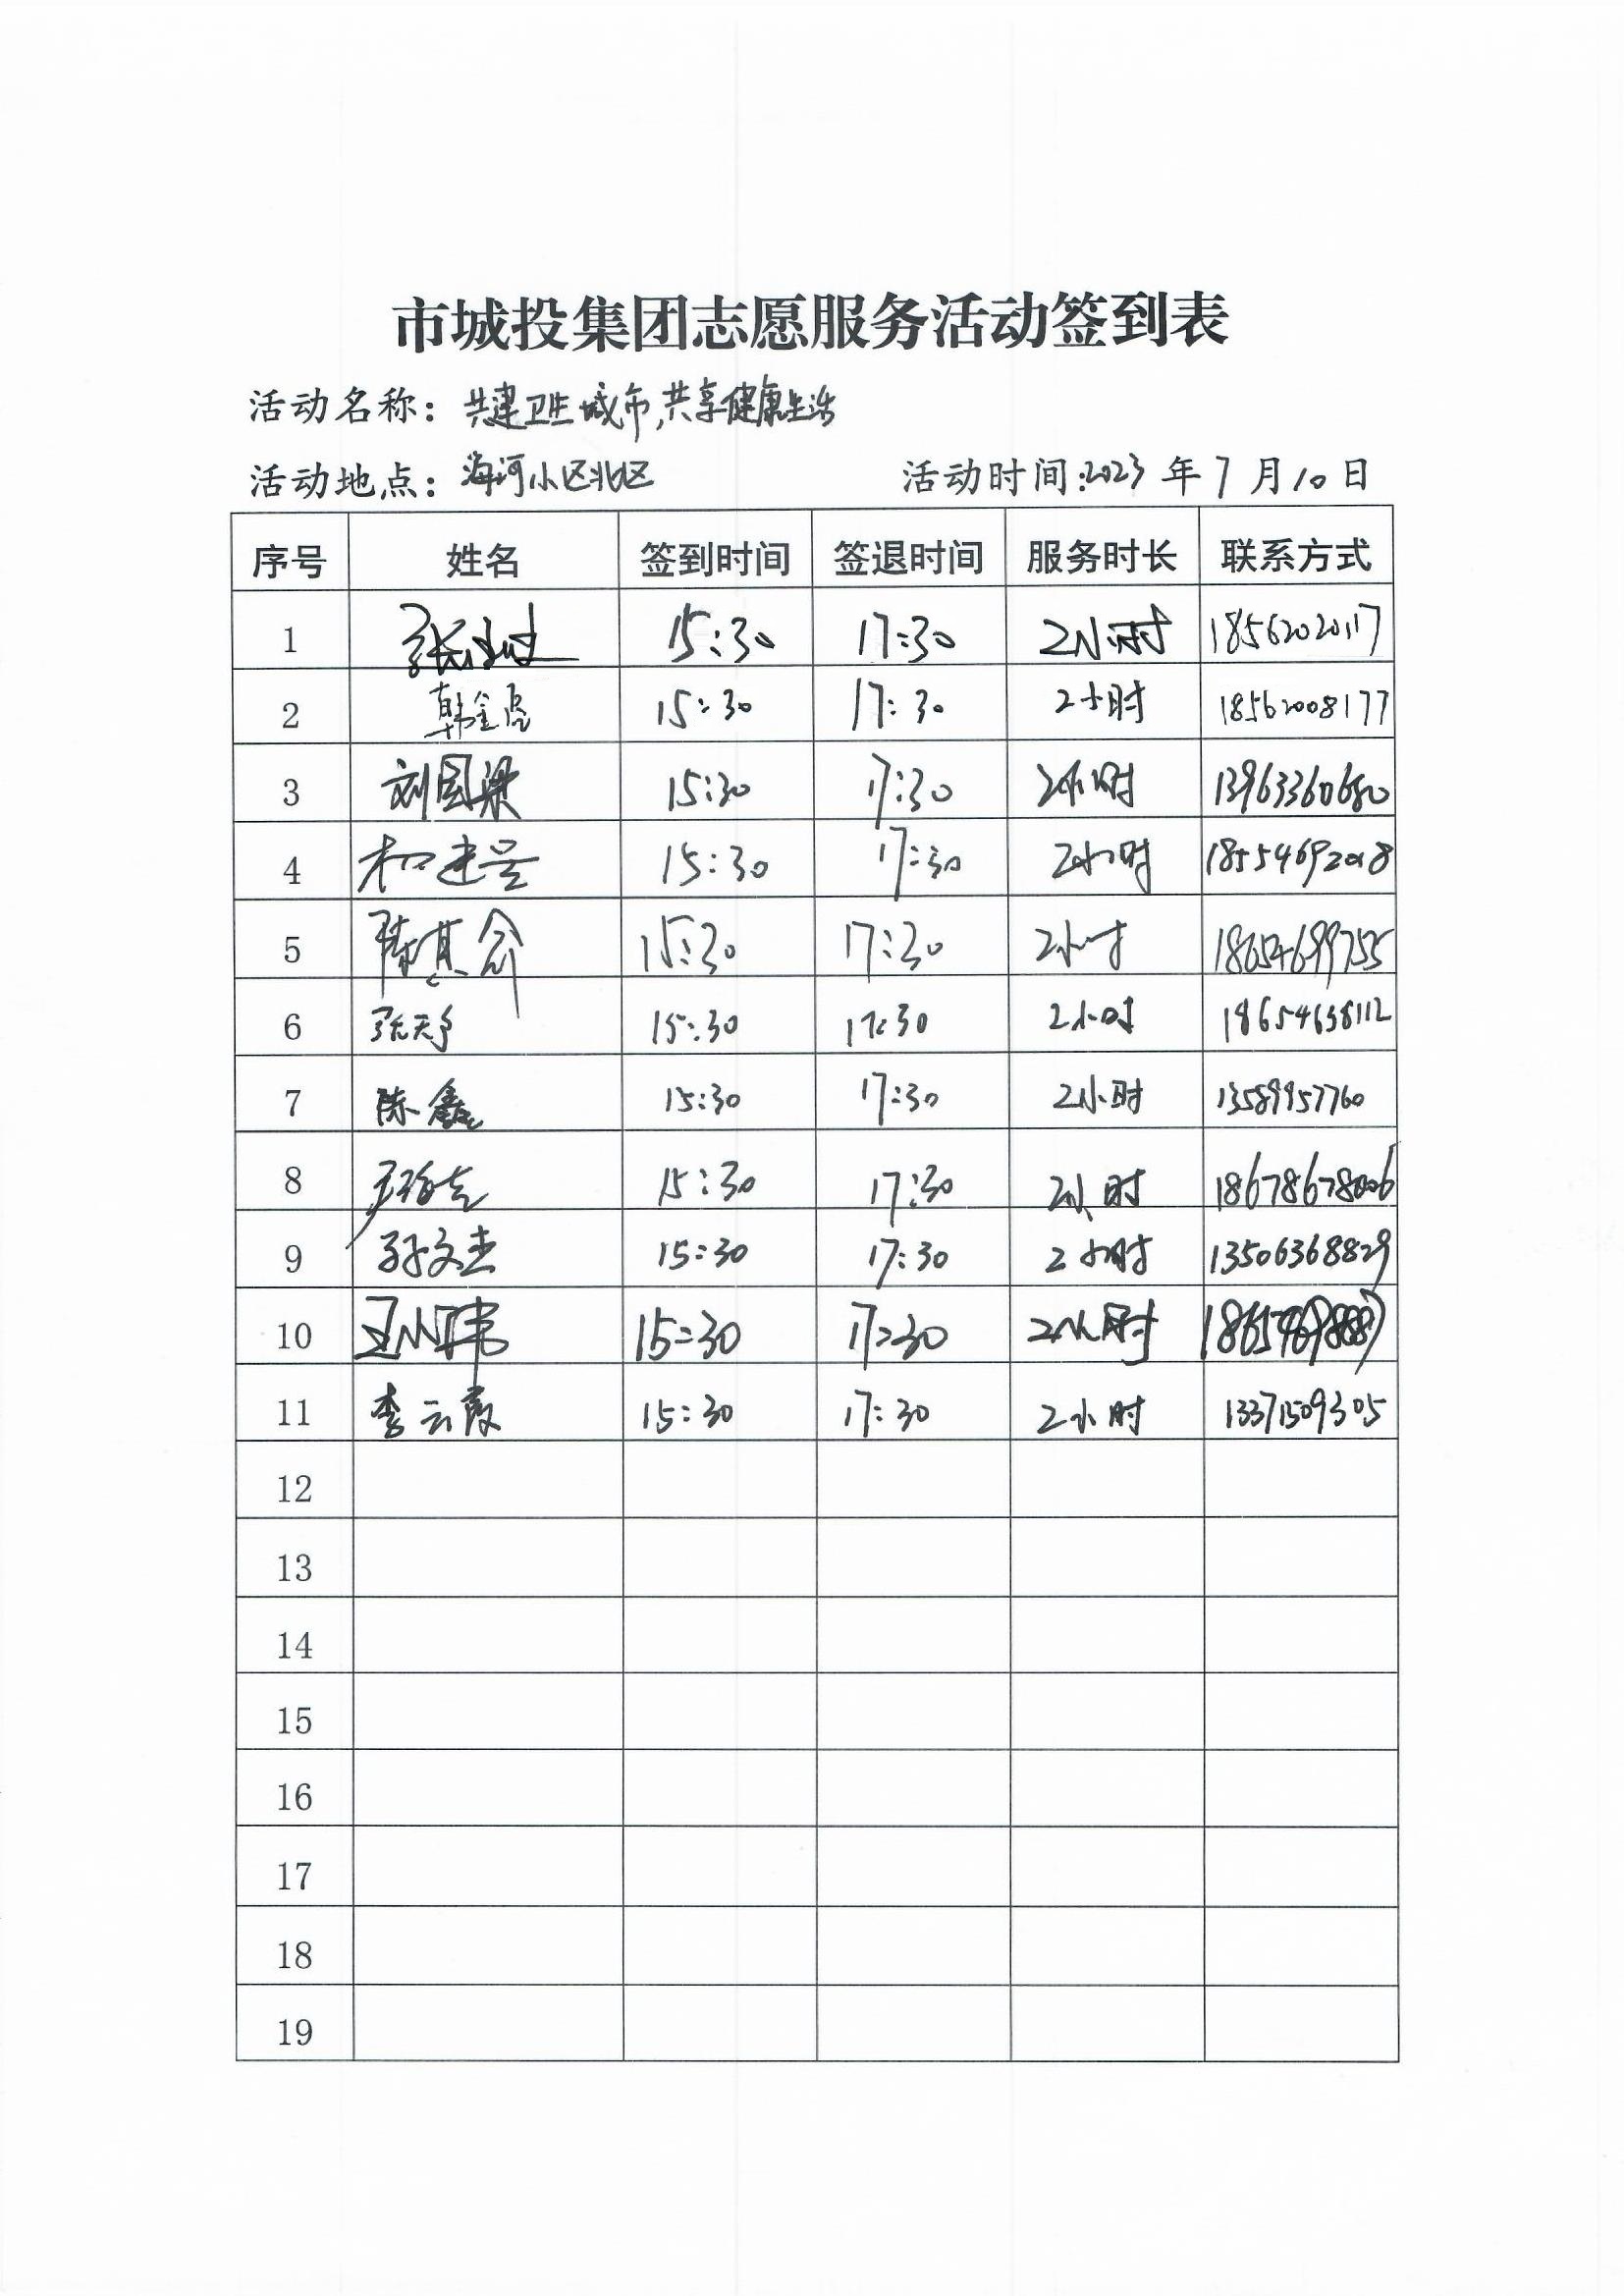 市城投集团志愿服务活动签到表
活动名称：共建卫生城市,共享健康生活
活动地点：海河小区北区 活动时间:2023年7月10日
序号 姓名 签到时间 签退时间 服务时长 联系方式
1 15:30 17:30 2小时 18562020117
2 韩金亮 15:30 17:30 2小时 18562008177
3 刘国梁 15:30 17:30 2小时 13963360680
4 15:30 17:30 2小时 18554692018
5 陈其 15:30 17:30 2小时 18654699755
6 张天 15:30 17:30 2小时 18654638112
7 陈鑫 15:30 17:30 2小时 13589957760
8 15:30 17:30 2小时 18678678006
9 孙文杰 15:30 17:30 2小时 13506368829
10 王小伟 15:30 17:30 2小时
11 李云霞 15:30 17:30 2小时 13371509305
12
13
14
15
16
17
18
19